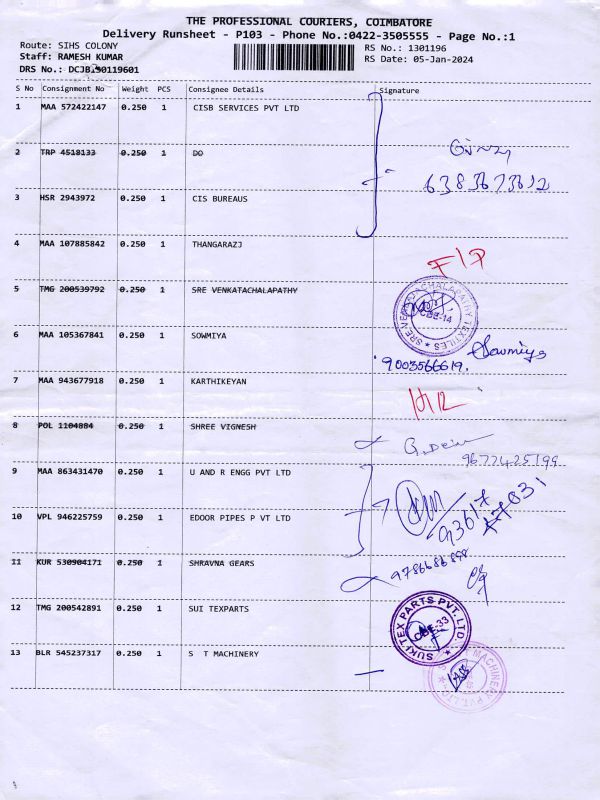 THE PROFESSIONAL COURIERS, COIMBATORE
Delivery Runsheet - P103 - Phone No.:0422-3505555 - Page No.:1
Route: SIHS COLONY
RS No.: 1301196
Staff: RAMESH KUMAR
RS Date: 05-Jan-2024
DRS No.: DCJB130119601
S No Consignment No Weight PCS Consignee Details Signature
1 MAA 572422147 0.250 1 CISB SERVICES PVT LTD
2 TRP 4518133 0.250 1 DO
6383673612
3 HSR 2943972 0.250 1 CIS BUREAUS
4 MAA 107885842 0.250 1 THANGARAZJ
5 TMG 200539792 0.250 1 SRE VENKATACHALAPATHY
SRE VENKATACHALAPATHY TEXTILES
CBE-14
6 MAA 105367841 0.250 1 SOWMIYA
Sowmiya
9003566619.
7 MAA 943677918 0.250 1 KARTHIKEYAN
8 POL 1104884 0.250 1 SHREE VIGNESH
9677425199
9 MAA 863431470 0.250 1 U AND R ENGG PVT LTD
10 VPL 946225759 0.250 1 EDOOR PIPES P VT LTD
11 KUR 530904171 0.250 1 SHRAVNA GEARS
9786686898
12 TMG 200542891 0.250 1 SUI TEXPARTS
SUKI TEX PARTS PVT. LTD
CBE-33
13 BLR 545237317 0.250 1 S T MACHINERY